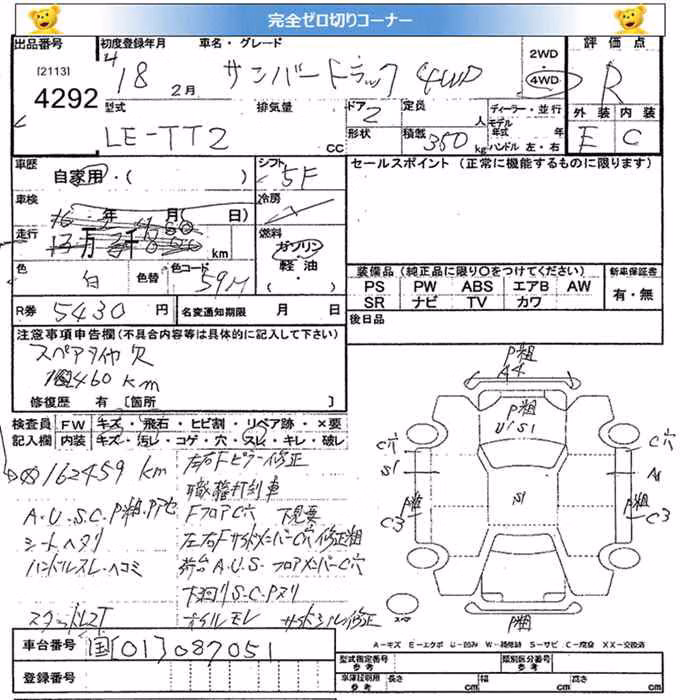 完全ゼロ切りコーナー
出品番号 [2113] 4292
初度登録年月 18 2月
車名・グレード サンバートラック 4WD
2WD 4WD
評価点 R
外装 E 内装 C
型式 LE-TT2
排気量 CC
ドア 2
形状
定員 人
積載 350 kg
ディーラー・並行
モデル年式 年
ハンドル 左・右
車歴 自家用・( )
シフト 5F
車検 年 月( 日)
冷房
走行 km
燃料 ガソリン・軽油 ( ・ )
色 白 色替 色コード 59M
R券 5430 円 名変通知期限 月 日
セールスポイント (正常に機能するものに限ります)
装備品 (純正品に限り〇をつけてください) 新車保証書
PS PW ABS エアB AW
SR ナビ TV カワ
有・無
後日品
注意事項申告欄 (不具合内容等は具体的に記入して下さい)
スペアタイヤ欠
460km
修復歴 有 [箇所
検査員記入欄
FW キズ・飛石・ヒビ割・リペア跡・×要
内装 キズ・汚レ・コゲ・穴・スレ・キレ・破レ
162459 km
A.U.S.C.P粗.Pアセ
シートヘタリ
ハンドルスレ・ヘコミ
スタッドレスT
左右Fピラー修正
職権打刻車
FフロアC穴 下見要
左右FサイドメンバーC穴 修正粗
荷台A.U.S.フロアメンバーC穴
下回りS.C.Pヌリ
オイルモレ サイドシル修正
P粗
A4
P粗
U1 S1
C穴
S1
P粗
C3
S1
C穴
A1
P粗
C3
スペア
P粗
車台番号 国[01]087051
登録番号
A-キズ E-エクボ U-凹み W-補修跡 S-サビ C-腐食 XX-交換済
型式指定番号 参考
類別区分番号 参考
車庫証明用 参考 長さ cm 幅 cm 高さ cm